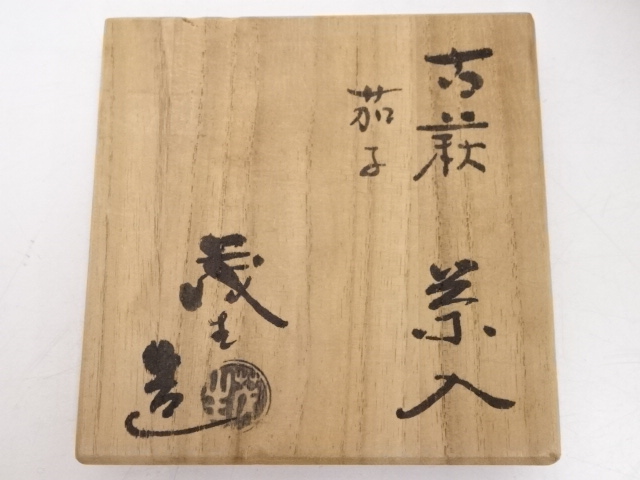 古萩 茶入
茄子
茂生
造